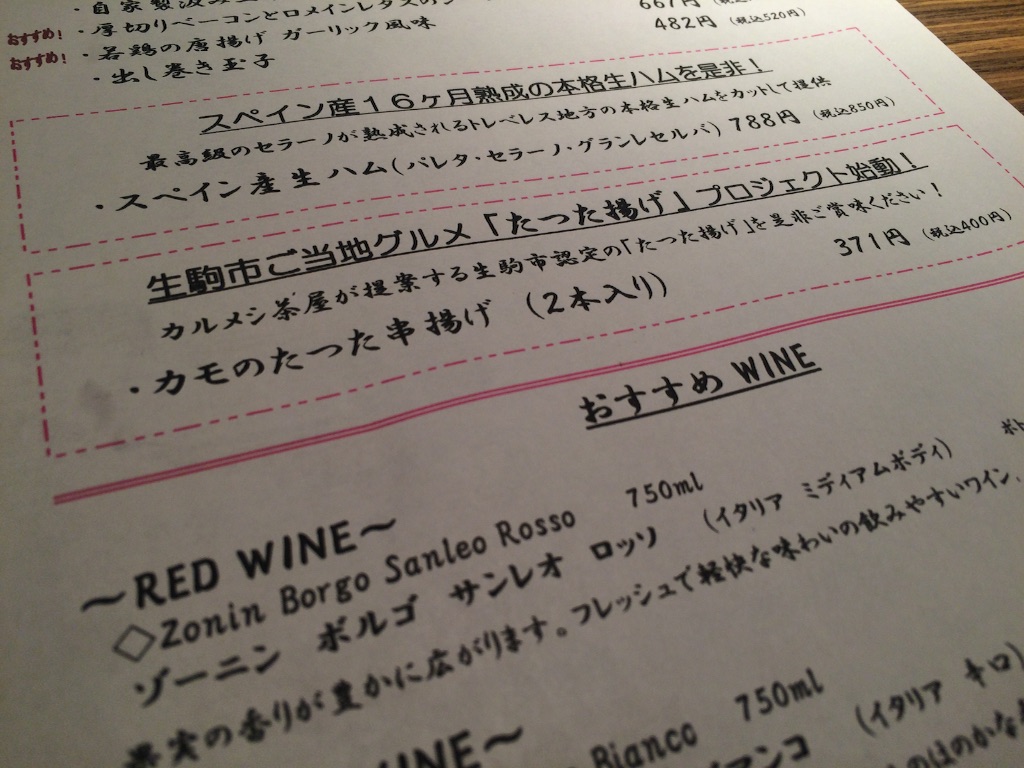 ・自家製
おすすめ！・厚切りベーコンとロメインレタスの 667円
おすすめ！・若鶏の唐揚げ ガーリック風味 482円 (税込520円)
・出し巻き玉子
スペイン産16ヶ月熟成の本格生ハムを是非！
最高級のセラーノが熟成されるトレベレス地方の本格生ハムをカットして提供
・スペイン産生ハム(パレタ・セラーノ・グランレセルバ) 788円 (税込850円)
生駒市ご当地グルメ「たつた揚げ」プロジェクト始動！
カルメシ茶屋が提案する生駒市認定の「たつた揚げ」を是非ご賞味ください！
・カモのたつた串揚げ (2本入り) 371円 (税込400円)
おすすめ WINE
～RED WINE～
◇Zonin Borgo Sanleo Rosso 750ml
ゾーニン ボルゴ サンレオ ロッソ (イタリア ミディアムボディ)
果実の香りが豊かに広がります。フレッシュで軽快な味わいの飲みやすいワイン。
WINE～
Bianco 750ml
ビアンコ (イタリア 辛口)
のほのかな